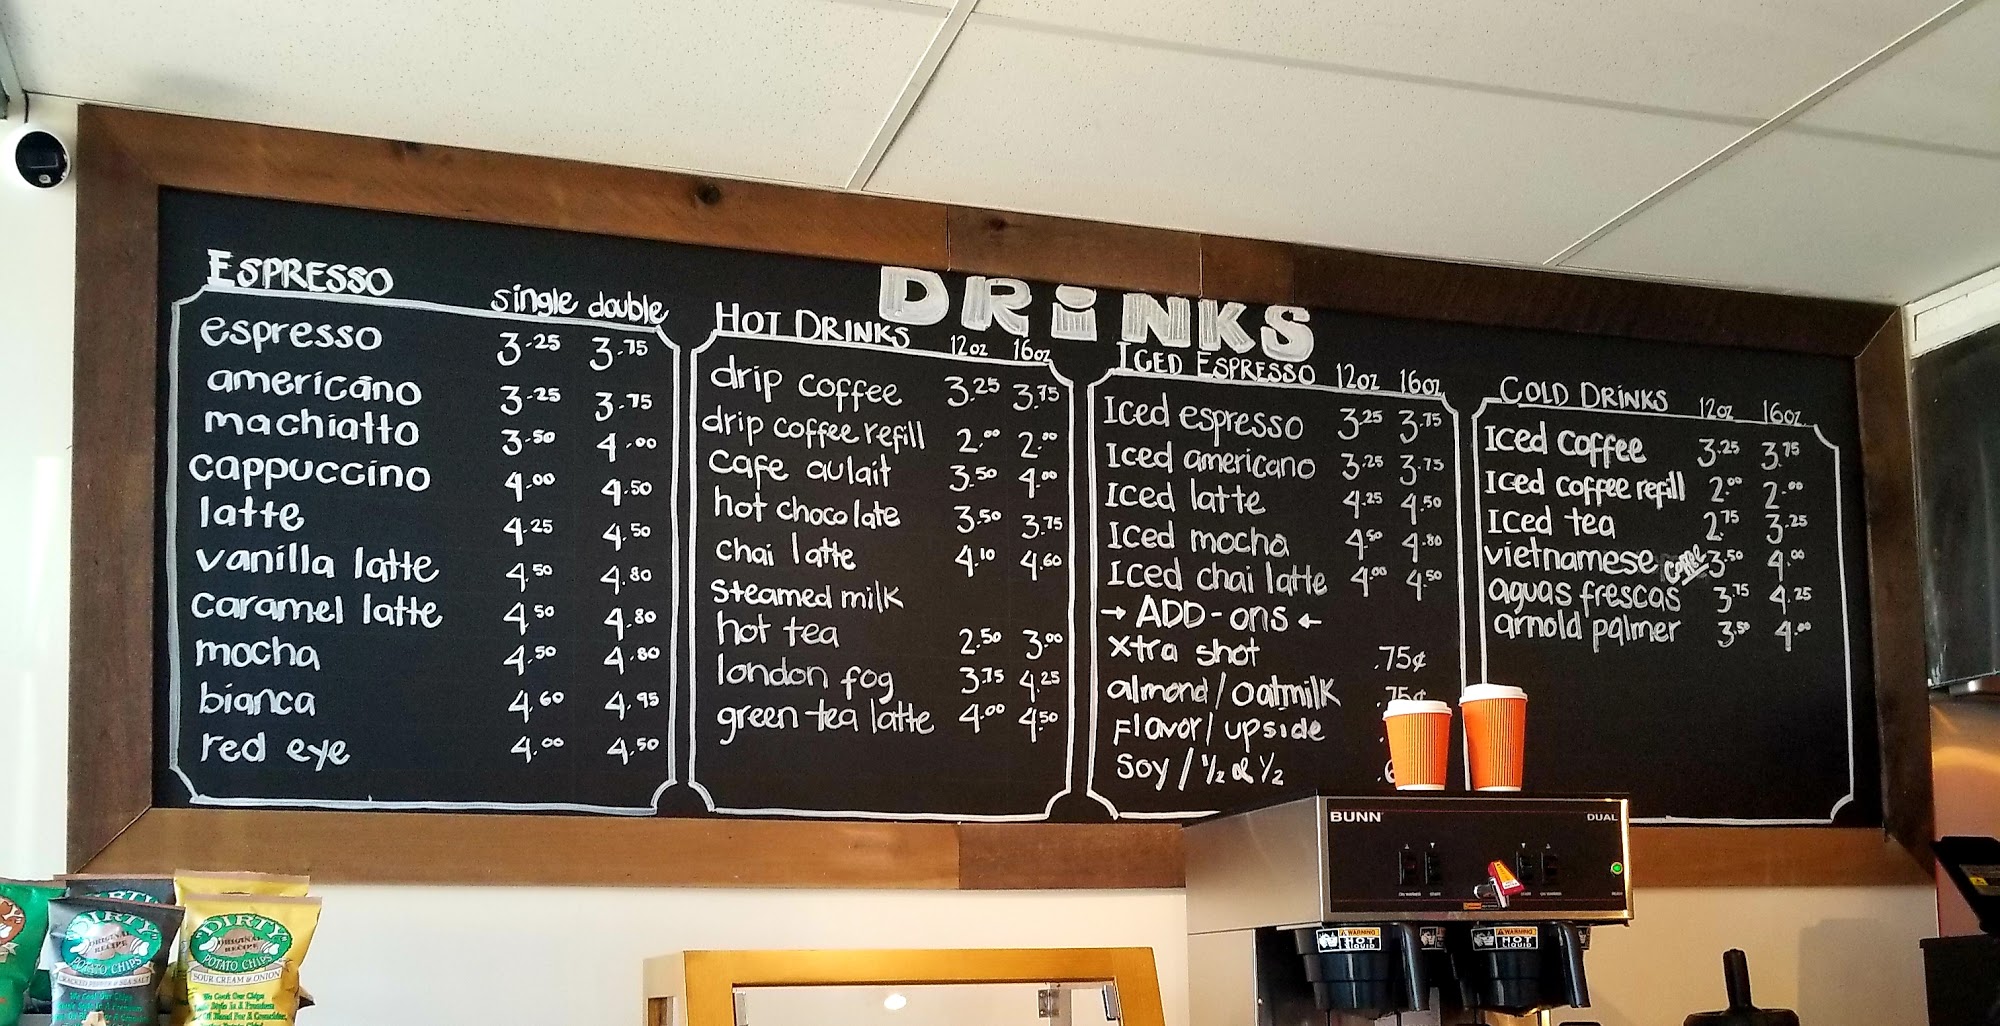 DRiNKS
ESPRESSO single double
espresso 3.25 3.75
americano 3.25 3.75
machiatto 3.50 4.00
cappuccino 4.00 4.50
latte 4.25 4.50
vanilla latte 4.50 4.80
caramel latte 4.50 4.80
mocha 4.50 4.80
bianca 4.60 4.95
red eye 4.00 4.50
HOT DRINKS 12oz 16oz
drip coffee 3.25 3.75
drip coffee refill 2.00 2.00
cafe aulait 3.50 4.00
hot chocolate 3.50 3.75
chai latte 4.10 4.60
steamed milk
hot tea 2.50 3.00
london fog 3.75 4.25
green tea latte 4.00 4.50
ICED ESPRESSO 12oz 16oz
Iced espresso 3.25 3.75
Iced americano 3.25 3.75
Iced latte 4.25 4.50
Iced mocha 4.50 4.80
Iced chai latte 4.00 4.50
→ ADD-ons ←
xtra shot .75¢
almond/oatmilk .75¢
Flavor/upside
Soy / 1/2 & 1/2
COLD DRINKS 12oz 16oz
Iced coffee 3.25 3.75
Iced coffee refill 2.00 2.00
Iced tea 2.75 3.25
vietnamese coffee 3.50 4.00
aguas frescas 3.75 4.25
arnold palmer 3.50 4.00
BUNN DUAL
WARNING
HOT
LIQUID
WARNING
HOT
LIQUID
"DIRTY"
ORIGINAL
RECIPE
POTATO CHIPS
CRACKED PEPPER & SEA SALT
"DIRTY"
ORIGINAL
RECIPE
POTATO CHIPS
SOUR CREAM & ONION